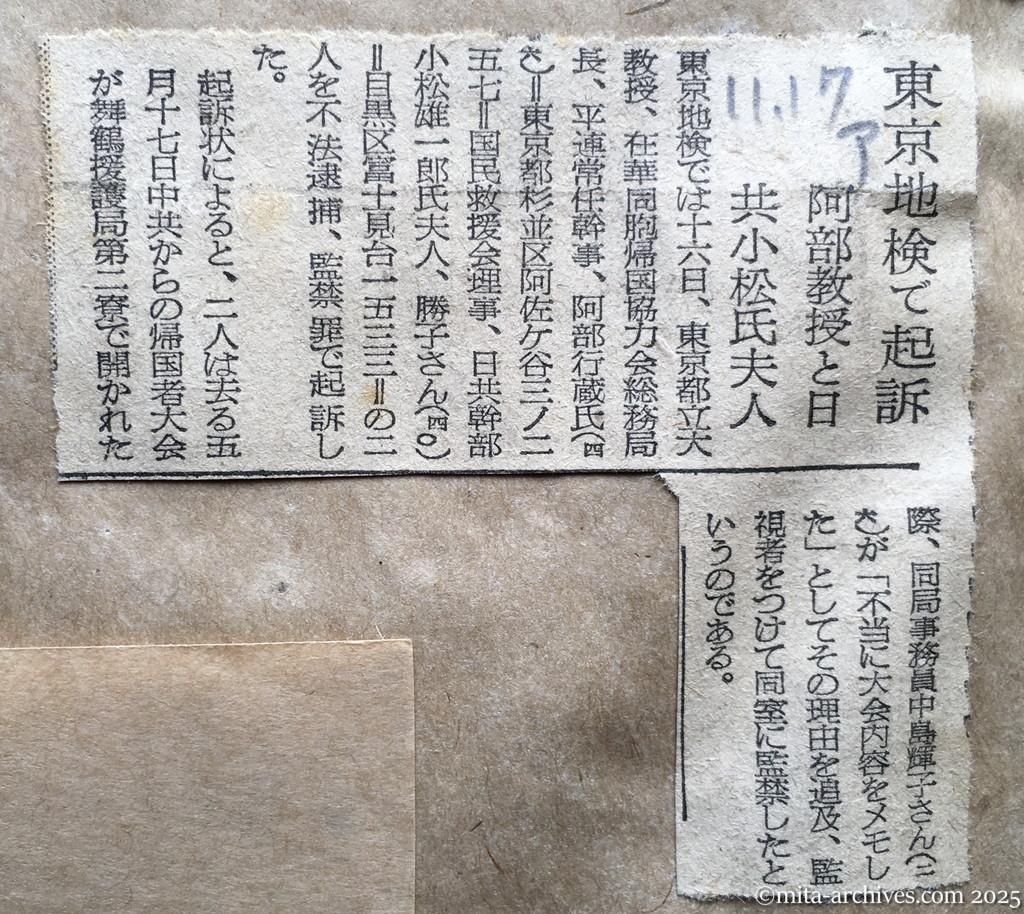 東京地検で起訴
阿部教授と日
共小松氏夫人
11.17
ア
東京地検では十六日、東京都立大
教授、在華同胞帰国協力会総務局
長、平連常任幹事、阿部行蔵氏(四
七)＝東京都杉並区阿佐ケ谷三ノ二
五七＝国民救援会理事、日共幹部
小松雄一郎氏夫人、勝子さん(四〇)
＝目黒区富士見台一五三三＝の二
人を不法逮捕、監禁罪で起訴し
た。
起訴状によると、二人は去る五
月十七日中共からの帰国者大会
が舞鶴援護局第二寮で開かれた
際、同局事務員中島輝子さん(二
が「不当に大会内容をメモし
た」としてその理由を追及、監
視者をつけて同室に監禁したと
いうのである。
©mita-archives.com 2025